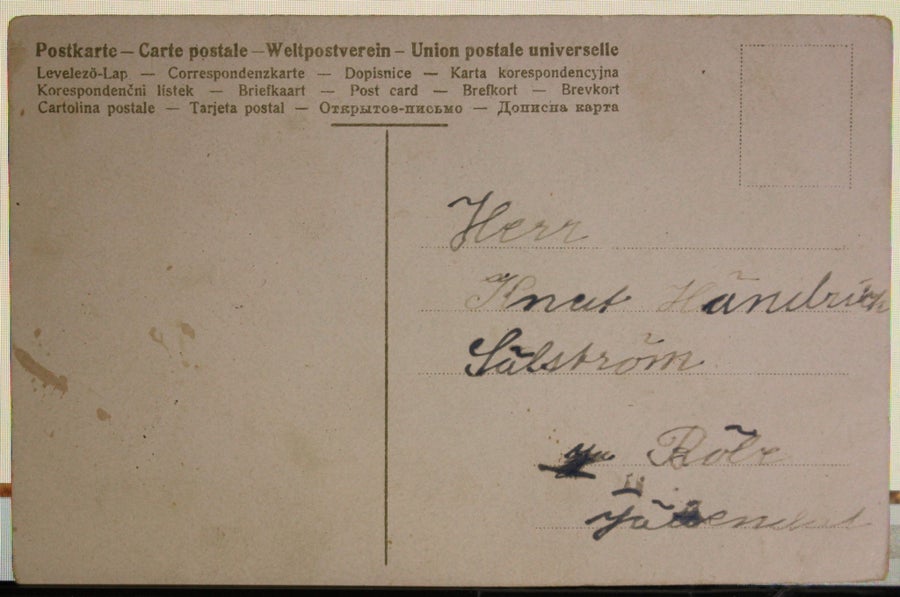 Postkarte — Carte postale — Weltpostverein — Union postale universelle
Levelező-Lap — Correspondenzkarte — Dopisnice — Karta korespondencyjna
Korespondenční lístek — Briefkaart — Post card — Brefkort — Brevkort
Cartolina postale — Tarjeta postal — Открытое-письмо — Дописна карта
Herr
Knut Händrick
Sälström
Böle